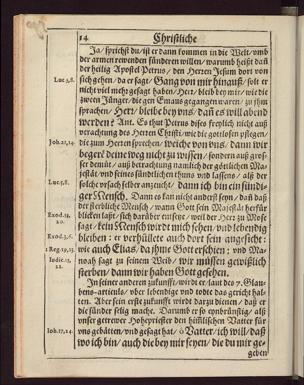 14 Christliche
Ja/ sprichst du/ ist er dann kommen in die Welt/ umb
der armen elenden sündern willen/ warumb heißt dañ
der heilig Apostel Petrus/ den Herren Jesum dort von
Luc.5,8. sich gehen/ da er sagt/ Gang von mir hinauß/ solt er
nicht viel mehr gesagt haben/ Herr/ bleib bey mir/ wie die
zween Jünger/ die gen Emaus gegangen waren/ zu jhm
sprachen/ Herr/ bleibe bey uns/ dañ es will abend
werden? Ant. Es thut Petrus dises freylich nicht auß
verachtung des Herren Christi/ wie die gottlosen pflegen/
Job.21,14. die zum Herren sprechen/ weiche von uns/ dann wir
begeren deine weg nicht zu wissen/ sondern auß gros-
ser demut/ auß betrachtung namlich der göttlichen Ma-
jestät/ und seines sündtlichen thuns und lassens/ als der
Luc.5,8. solche ursach selber anzeucht/ dann ich bin ein sündi-
ger Mensch. Dann es kan nicht anderst seyn/ daß
der sterbliche Mensch/ wann Gott sein Majestät herfür
Exod.33, blicken laßt/ sich darüber entsetze/ weil der Herr zu Mose
20. sagt/ kein Mensch wird mich sehen/ und lebendig
Exod.3,6. bleiben: er verhüllete auch dort sein angesicht:
1 Reg.19,13 wie auch Elias/ da jhme Gott erschien; und Ma-
Judic.13, noah sagt zu seinem Weib/ wir müssen gewißlich
22. sterben/ dann wir haben Gott gesehen.
In seiner anderen zukunfft/ wirdt er/ laut des 7. Glau-
bens-articuls/ uber lebendige und todte das gericht hal-
ten. Aber sein erste zukunfft wirdt darzu dienen/ daß er
die sünder selig mache. Darumb er so eynbrünstig/ als
unser getrewer Hohepriester den himlischen Vatter für
Joh.17,24. uns gebätten/ und gesagt hat/ ô Vatter/ ich will/ daß
wo ich bin/ auch die bey mir seyen/ die du mir ge-
geben